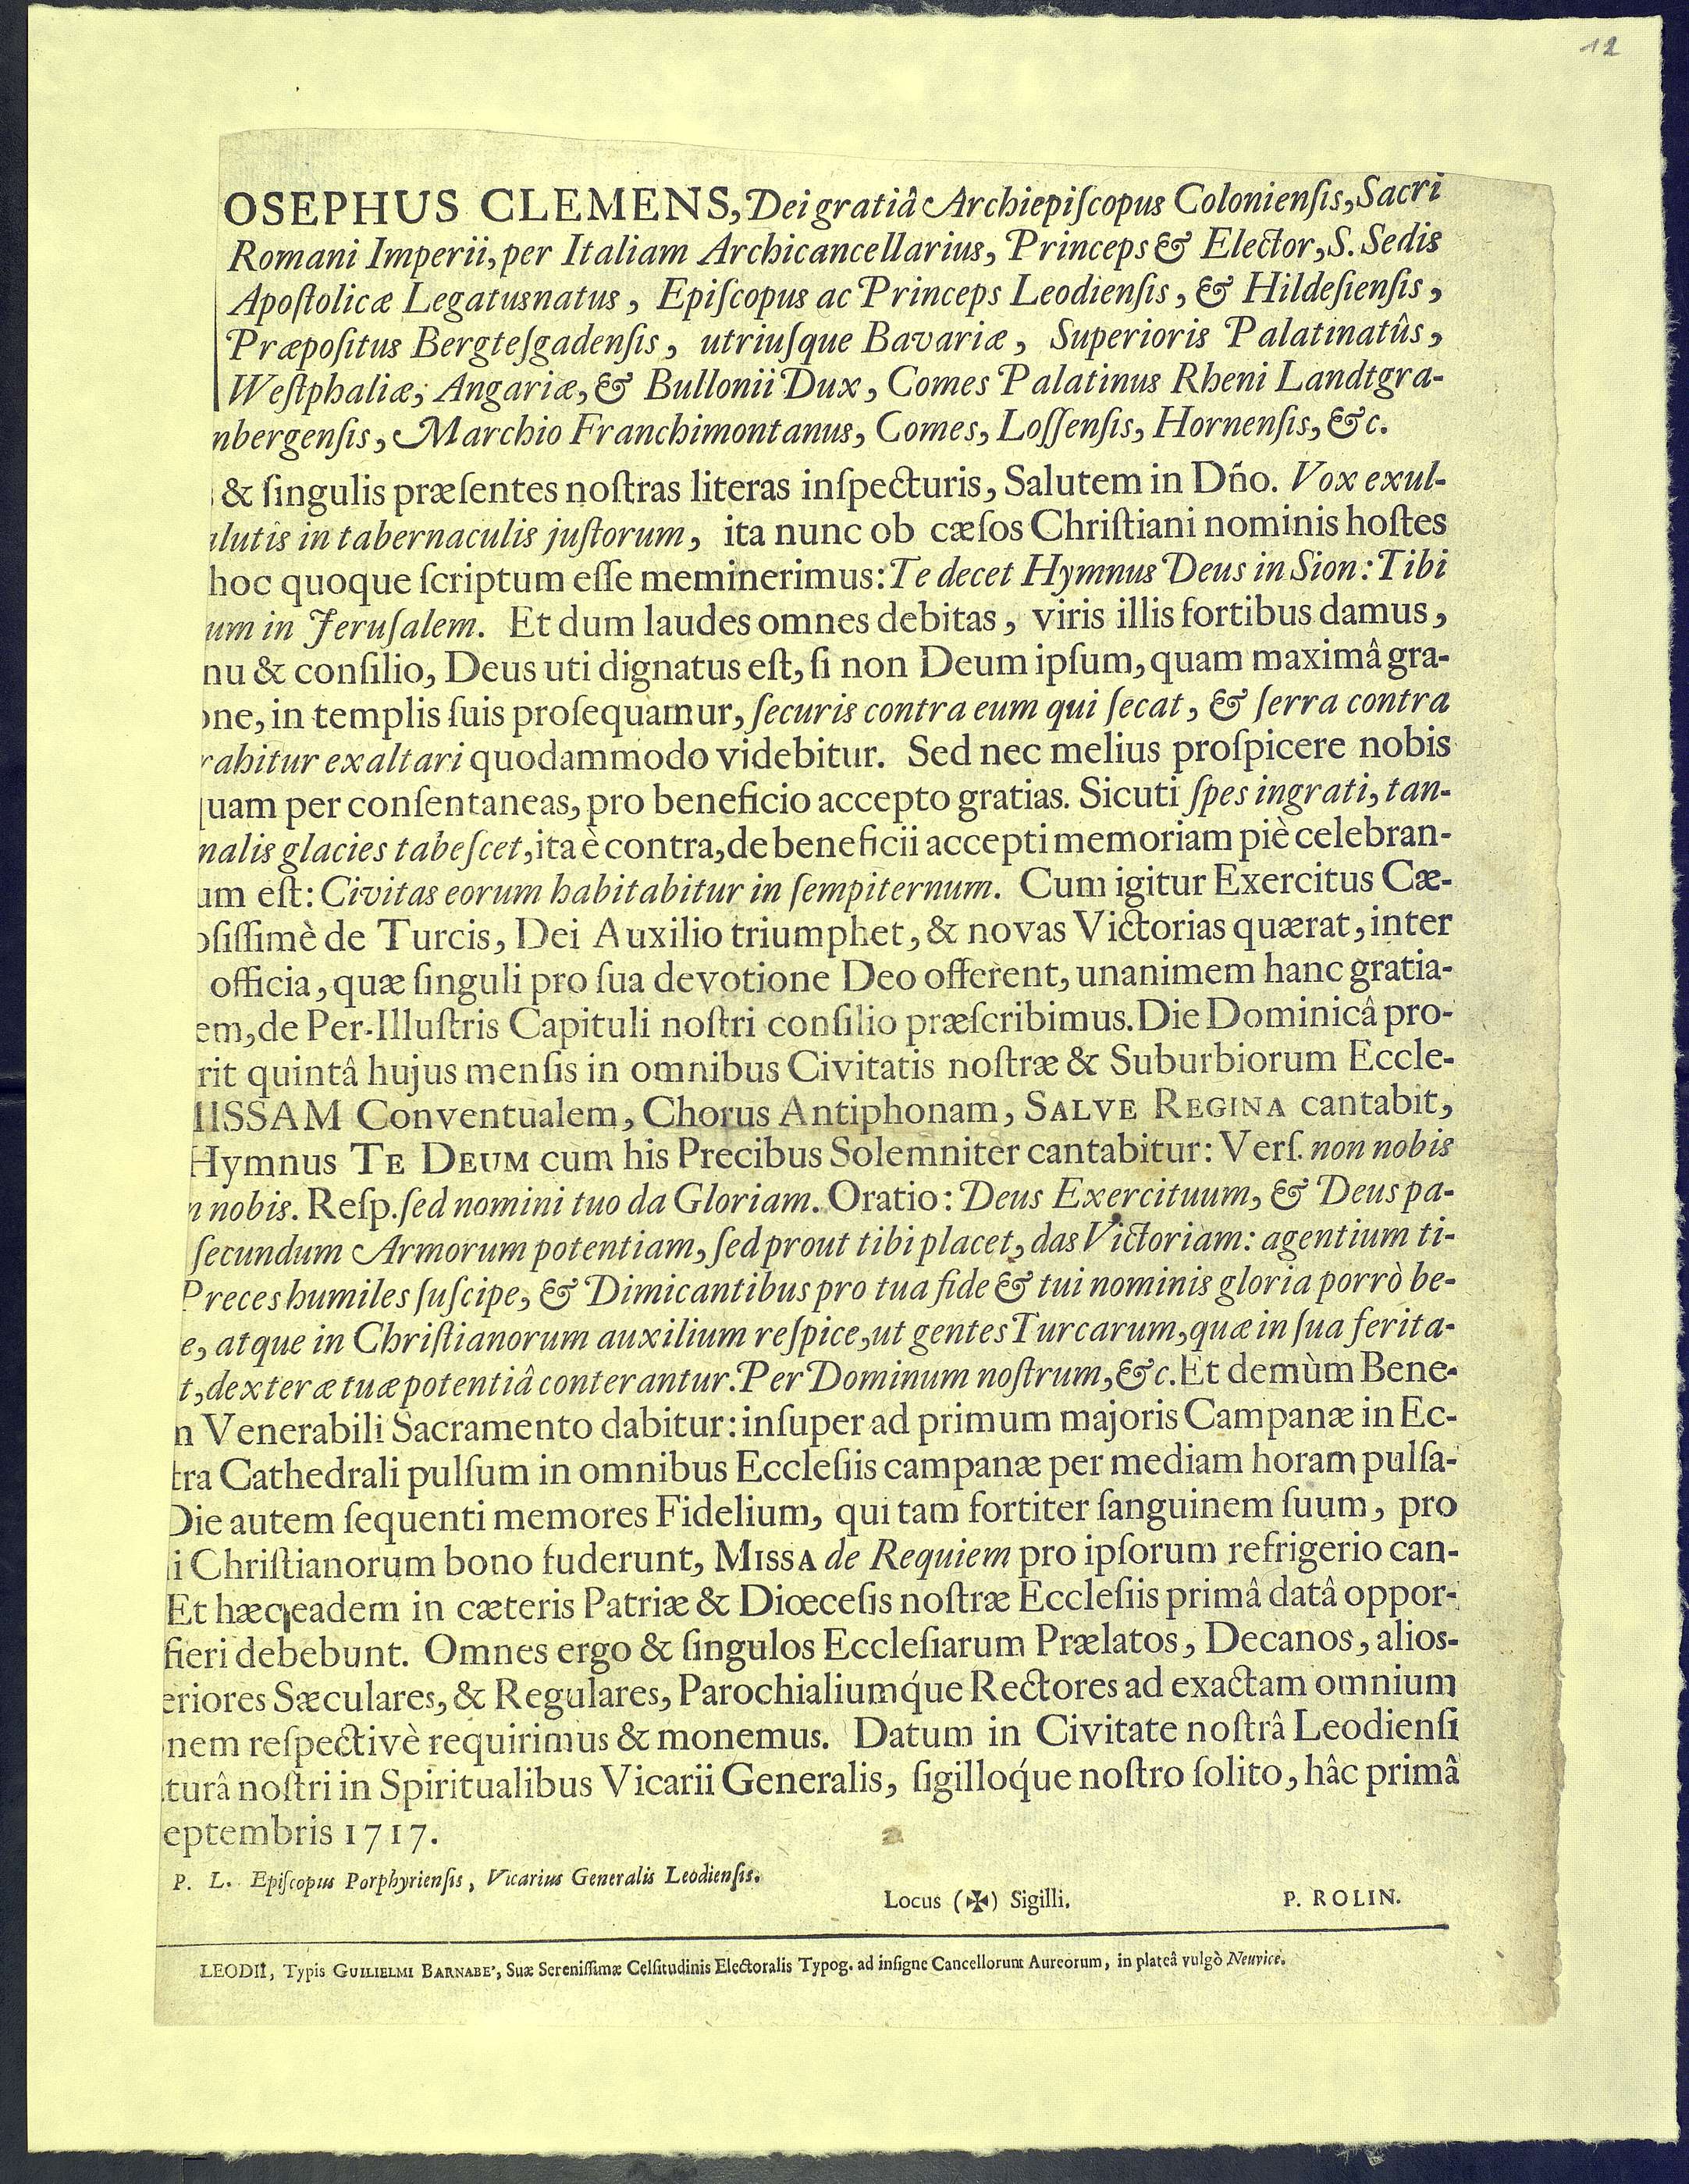 12
OSEPHUS CLEMENS, Dei gratiâ Archiepiſcopus Colonienſis, Sacri
Romani Imperii, per Italiam Archicancellarius, Princeps & Elector, S. Sedis
Apoſtolicæ Legatusnatus, Epiſcopus ac Princeps Leodienſis, & Hildeſienſis,
Præpoſitus Bergteſgadenſis, utriuſque Bavariæ, Superioris Palatinatûs,
Weſtphaliæ; Angariæ, & Bullonii Dux, Comes Palatinus Rheni Landtgra-
nbergenſis, Marchio Franchimontanus, Comes, Loſſenſis, Hornenſis, &c.
& ſingulis præſentes noſtras literas inſpecturis, Salutem in Dño. Vox exul-
lutis in tabernaculis juſtorum, ita nunc ob cæſos Chriſtiani nominis hoſtes
hoc quoque ſcriptum eſſe meminerimus: Te decet Hymnus Deus in Sion: Tibi
um in Jeruſalem. Et dum laudes omnes debitas, viris illis fortibus damus,
nu & conſilio, Deus uti dignatus eſt, ſi non Deum ipſum, quam maximâ gra-
one, in templis ſuis proſequamur, ſecuris contra eum qui ſecat, & ſerra contra
rahitur exaltari quodammodo videbitur. Sed nec melius proſpicere nobis
uam per conſentaneas, pro beneficio accepto gratias. Sicuti ſpes ingrati, tan-
nalis glacies tabeſcet, ita è contra, de beneficii accepti memoriam piè celebran-
um eſt: Civitas eorum habitabitur in ſempiternum. Cum igitur Exercitus Cæ-
oſiſſimè de Turcis, Dei Auxilio triumphet, & novas Victorias quærat, inter
officia, quæ ſinguli pro ſua devotione Deo offerent, unanimem hanc gratia-
em, de Per-Illuſtris Capituli noſtri conſilio præſcribimus. Die Dominicâ pro-
rit quintâ hujus menſis in omnibus Civitatis noſtræ & Suburbiorum Eccle-
ISSAM Conventualem, Chorus Antiphonam, SALVE REGINA cantabit,
Hymnus TE DEUM cum his Precibus Solemniter cantabitur: Verſ. non nobis
n nobis. Reſp. ſed nomini tuo da Gloriam. Oratio: Deus Exercituum, & Deus pa-
ſecundum Armorum potentiam, ſed prout tibi placet, das Victoriam: agentium ti-
Preces humiles ſuſcipe, & Dimicantibus pro tua fide & tui nominis gloria porrò be-
e, atque in Chriſtianorum auxilium reſpice, ut gentes Turcarum, quæ in ſua ferita-
t, dexteræ tuæ potentiâ conterantur. Per Dominum noſtrum, &c. Et demùm Bene-
n Venerabili Sacramento dabitur: inſuper ad primum majoris Campanæ in Ec-
tra Cathedrali pulſum in omnibus Eccleſiis campanæ per mediam horam pulſa-
Die autem ſequenti memores Fidelium, qui tam fortiter ſanguinem ſuum, pro
i Chriſtianorum bono fuderunt, MISSA de Requiem pro ipſorum refrigerio can-
Et hæc eadem in cæteris Patriæ & Diœceſis noſtræ Eccleſiis primâ datâ oppor-
fieri debebunt. Omnes ergo & ſingulos Eccleſiarum Prælatos, Decanos, alios-
eriores Sæculares, & Regulares, Parochialiumq́ue Rectores ad exactam omnium
nem reſpectivè requirimus & monemus. Datum in Civitate noſtrâ Leodienſi
turâ noſtri in Spiritualibus Vicarii Generalis, ſigilloq́ue noſtro ſolito, hâc primâ
eptembris 1717.
P. L. Epiſcopus Porphyrienſis, Vicarius Generalis Leodienſis.
Locus (✠) Sigilli. P. ROLIN.
LEODII, Typis GUILIELMI BARNABE', Suæ Sereniſſimæ Celſitudinis Electoralis Typog. ad inſigne Cancellorum Aureorum, in plateâ vulgò Neuvice.